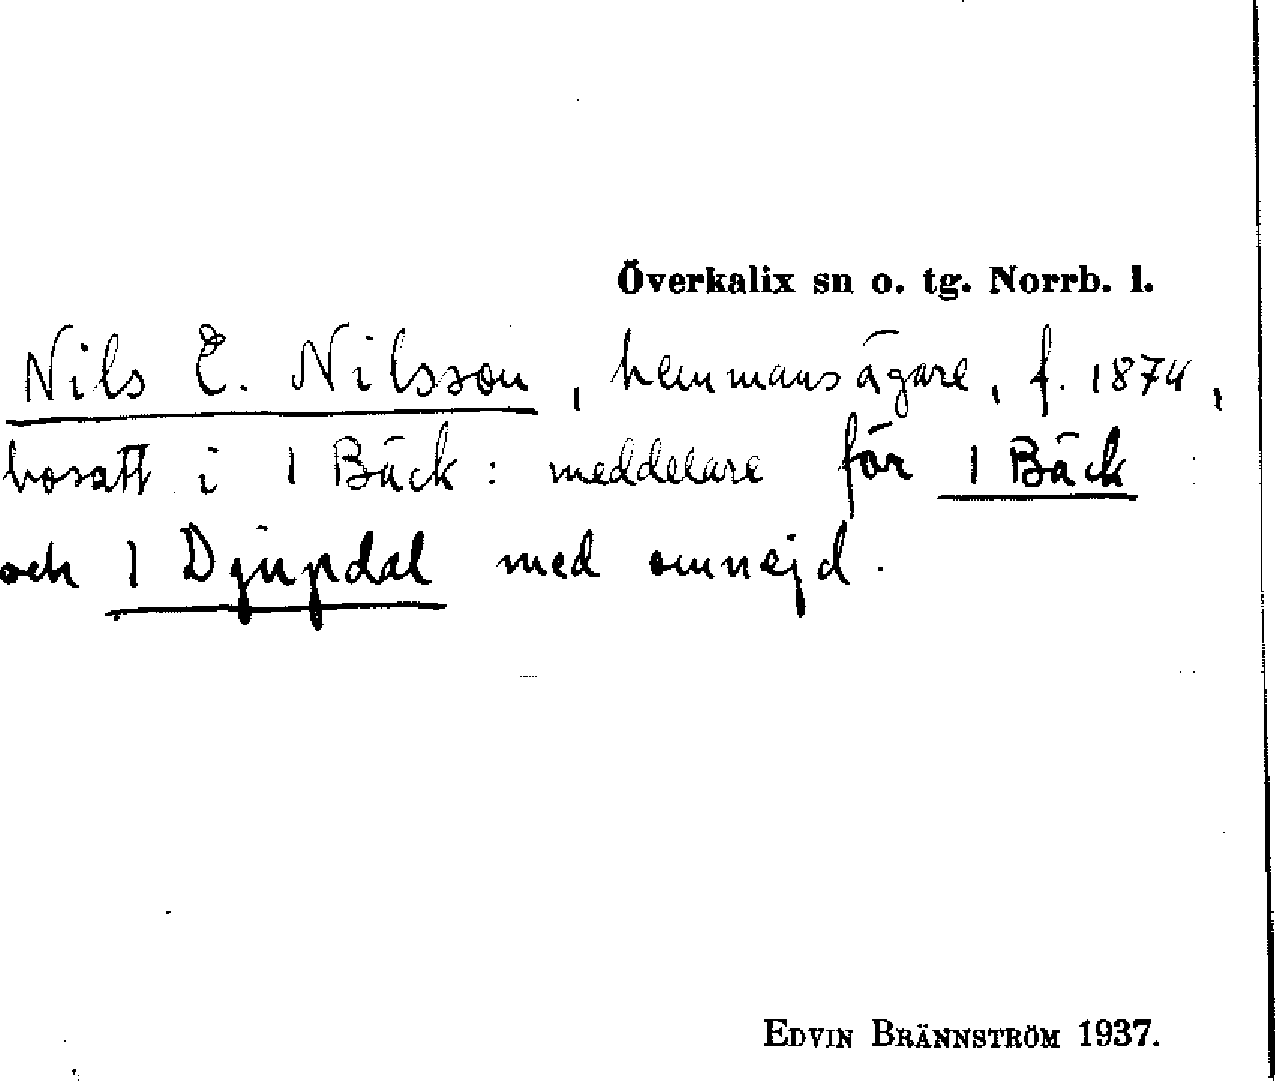 Överkalix sn o. tg. Norrb. l.
Nils E. Nilsson, hemmansägare, f. 1874,
bosatt i 1 Bäck: meddelare för 1 Bäck
och 1 Djupdal med omnejd.
EDVIN BRÄNNSTRÖM 1937.